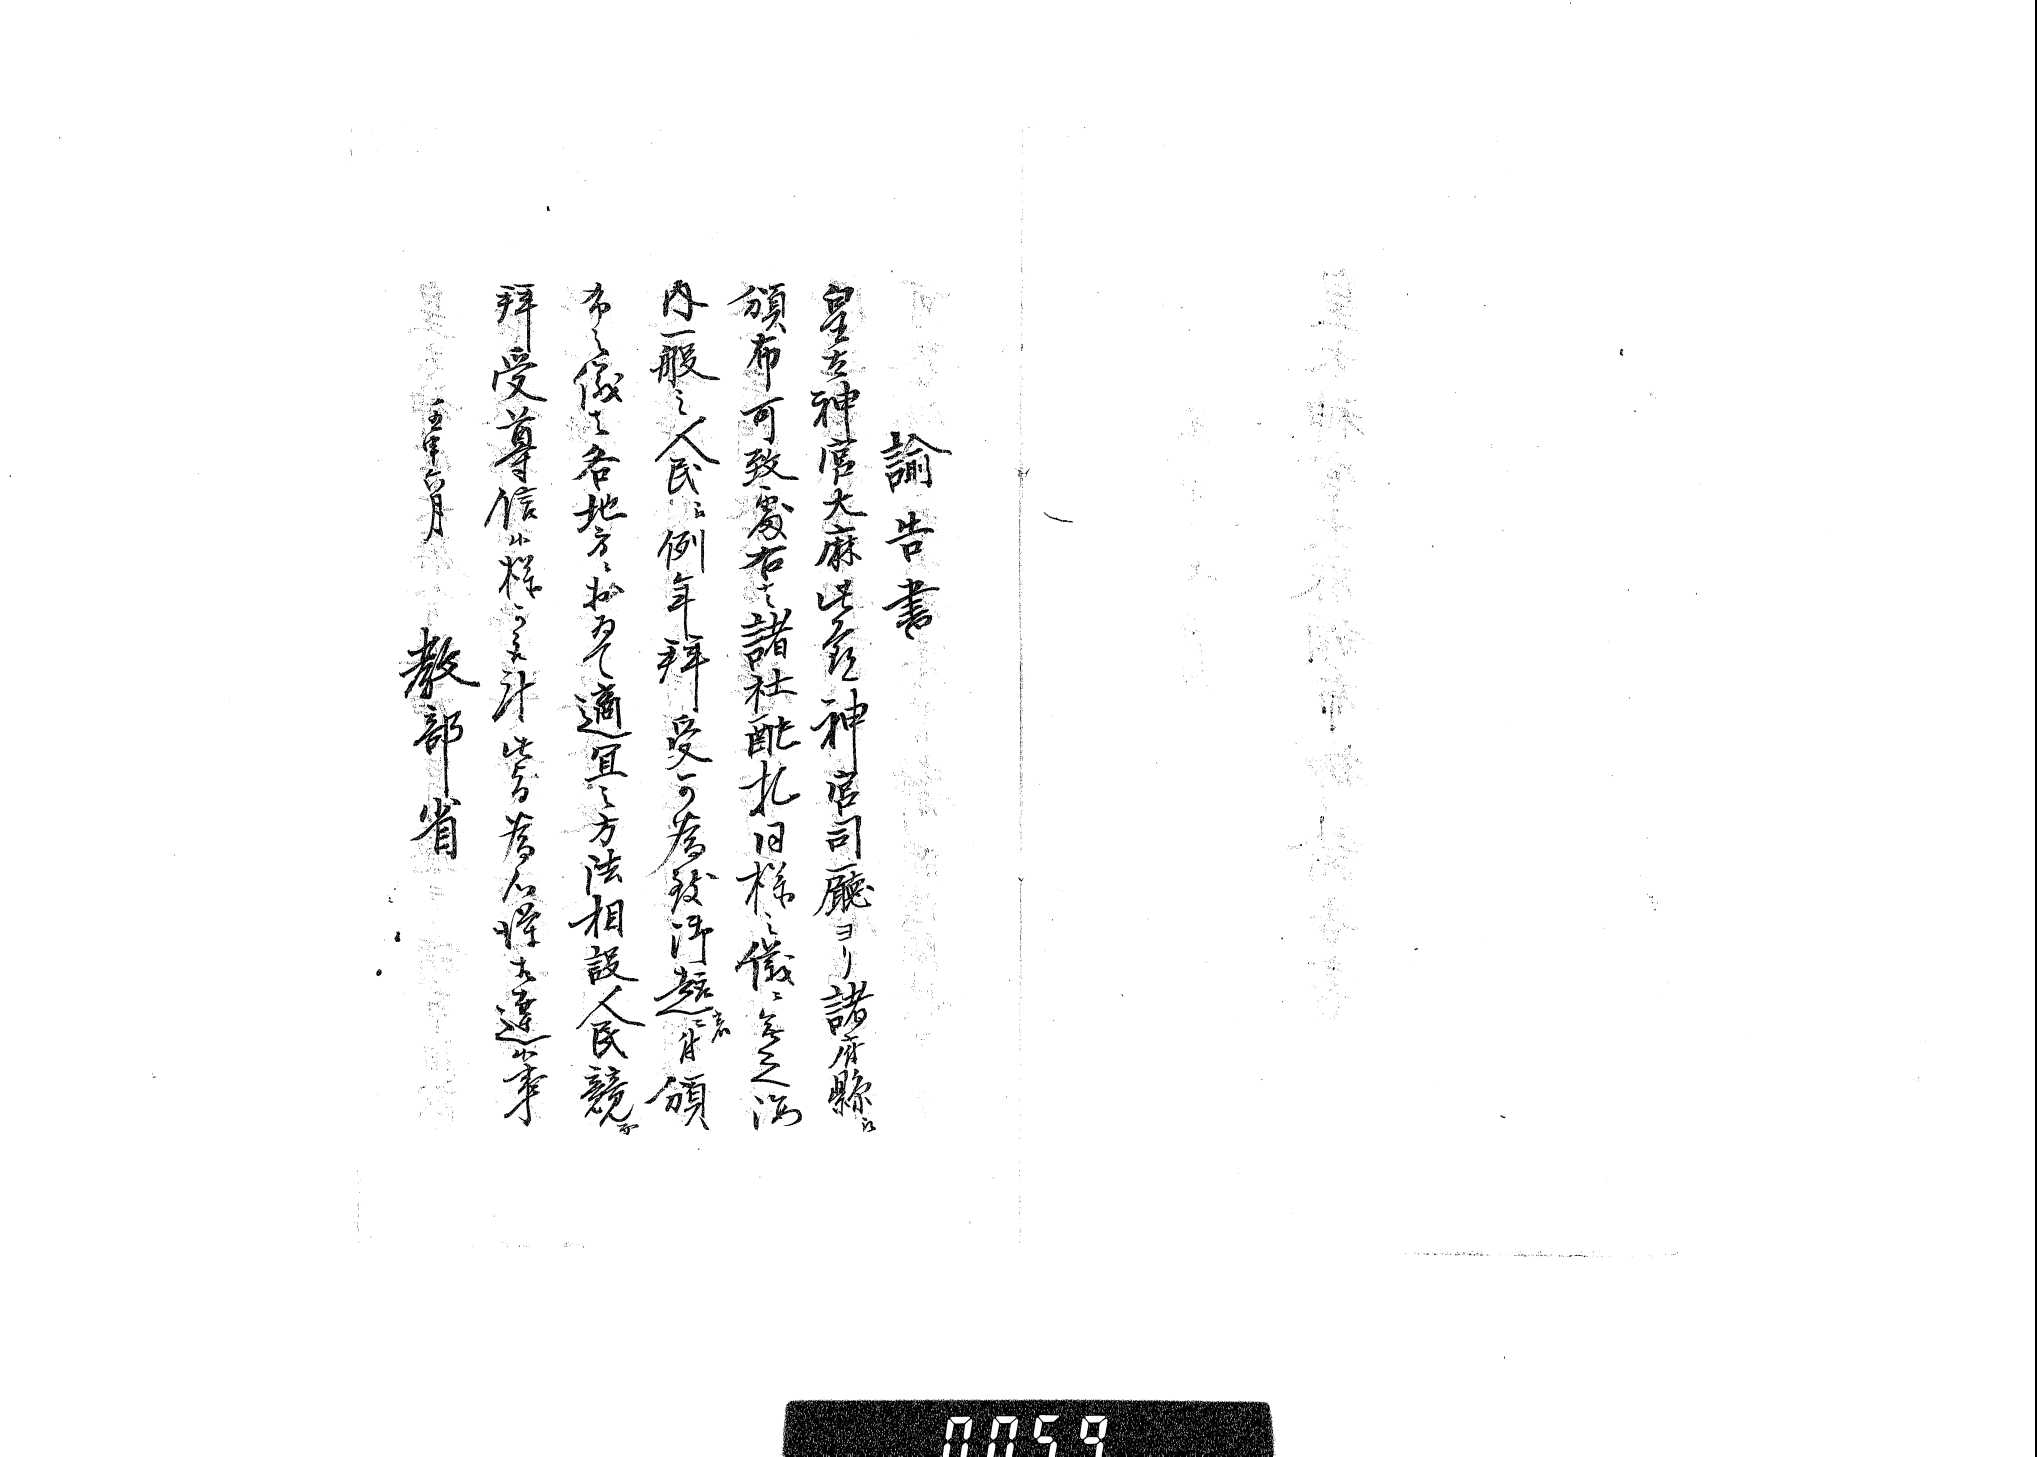 諭告書
皇太神宮大麻此節神宮司廳ヨリ諸府縣江
頒布可致處右者諸社配札旧様之儀ニ無之海
内一般之人民ニ例年拝受可為致御趣意ニ付頒
布之儀者各地方ニ於ゐて適宜之方法相設人民競而
拝受尊信候様可取計此旨為心得相達候事
壬申六月
教部省
0059